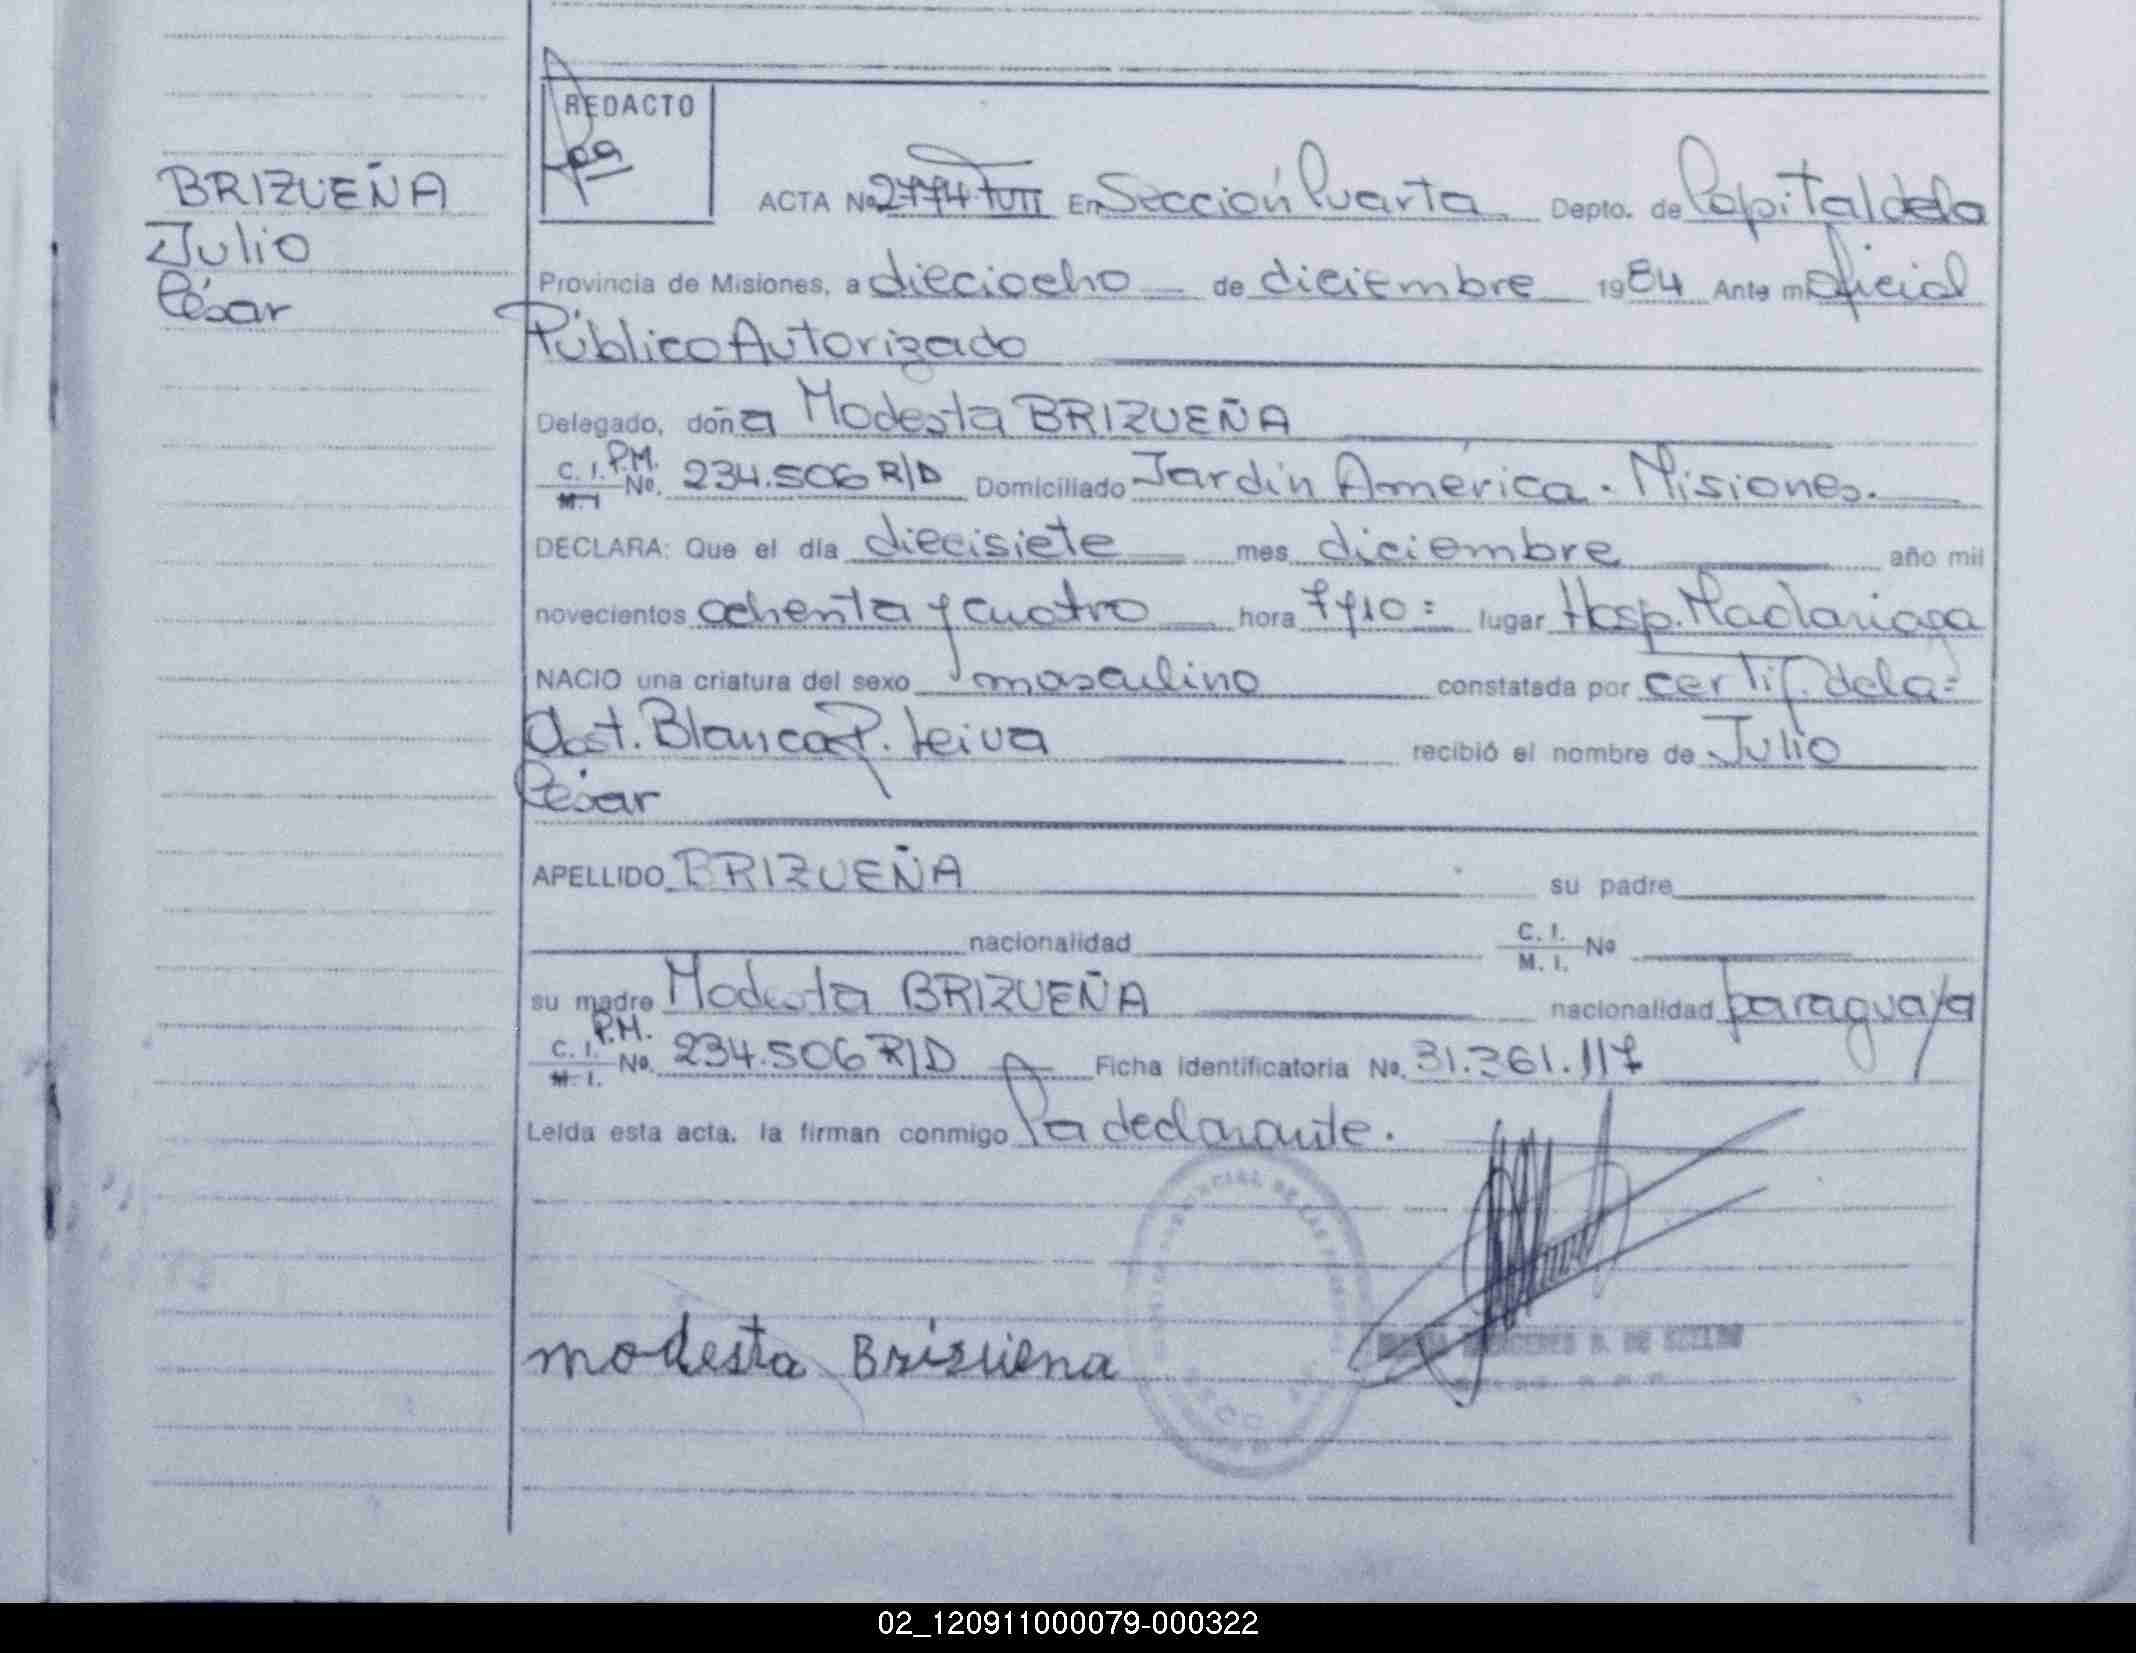 REDACTO
BRIZUEÑA
Julio
César
ACTA Nº 2774 TVII En Sección Cuarta Depto. de Capital de la
Provincia de Misiones, a dieciocho de diciembre 1984 Ante mi Oficial
Público Autorizado
Delegado, doña Modesta BRIZUEÑA
C. I. P.M.
M. I. No. 234.506 R/D Domiciliado Jardín América. Misiones.
DECLARA: Que el día diecisiete mes diciembre año mil
novecientos ochenta y cuatro hora 7 y 10 = lugar Hosp. Madariaga
NACIO una criatura del sexo masculino constatada por certif. de la =
Obst. Blanca P. Leiva recibió el nombre de Julio
César
APELLIDO BRIZUEÑA su padre
nacionalidad C. I. M. I. Nº
su madre Modesta BRIZUEÑA nacionalidad paraguaya
C. I. P.M.
M. I. No. 234.506 R/D Ficha identificatoria No. 31.361.117
Leída esta acta, la firman conmigo la declarante.
modesta Brizuena
02_120911000079-000322